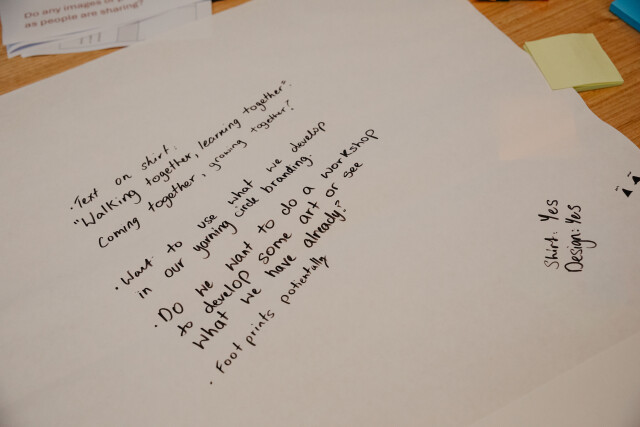 Do any images in
as people are sharing?
· Text on shirt:
"Walking together, learning together".
Coming together, growing together?
· Want to use what we develop
in our yarning circle branding.
· Do we want to do a workshop
to develop some art or see
what we have already?
· Foot prints potientially
Shirt: Yes
Design: Yes